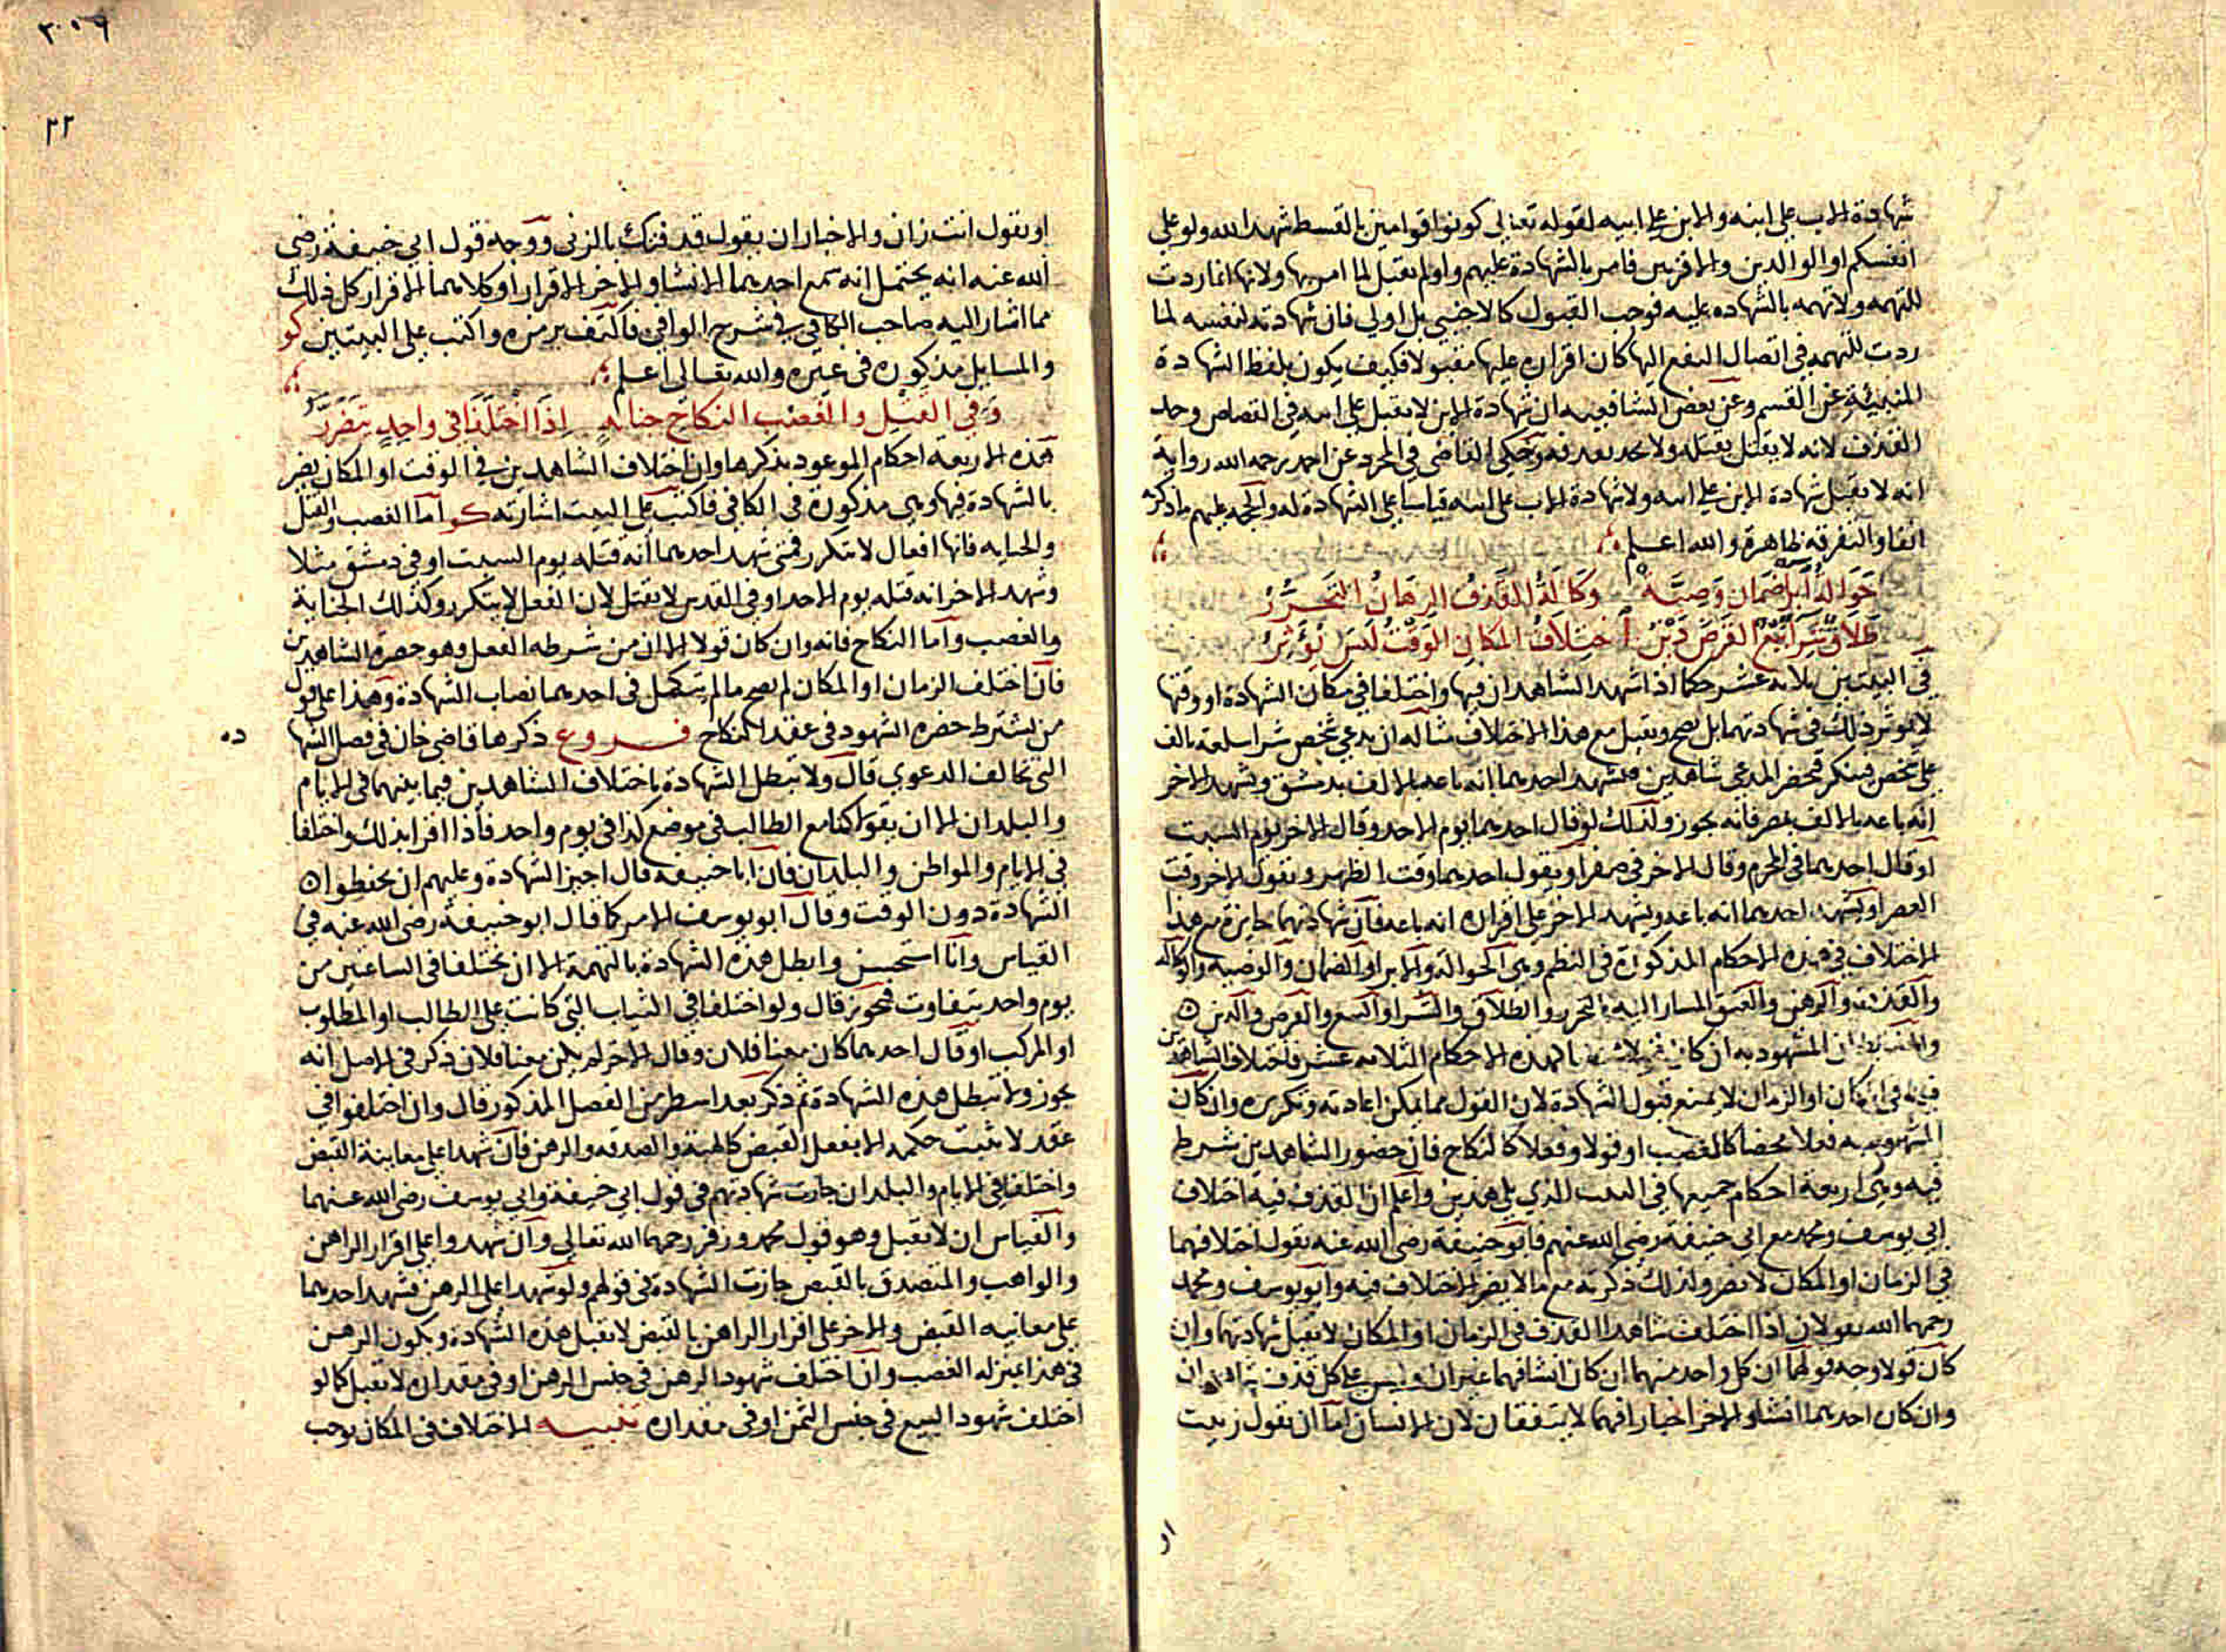 شهادة الاب على ابنه والابن على ابيه لقوله تعالى كونوا قوامين بالقسط شهدا لله ولو على
انفسكم او الوالدين والاقربين فامر بالشهادة عليهم ولو لم تقبل لما امر بها ولانها انما ردت
للتهمه ولا تهمه بالشهاده عليه فوجب القبول كالاجنبي بل اولى فان شهادته لنفسه لما
ردت للتهمه في اتصال النفع اليها كان اقراره عليها مقبولا فكيف يكون بلفظ الشهادة
المنبئة عن القسم وعن بعض الشافعيه ان شهادة الابن لا تقبل على ابيه في القصاص وحد
القذف لانه لا يقتل بقتله ولا يحد بقذفه وحكى القاضي في المجرد عن احمد رحمه الله رواية
انه لا تقبل شهادة الابن على ابيه ولا شهادة الاب على ابنه قياسا على الشهادة له والحجه عليهم ما ذكره
انفا والتفرقه ظاهرة والله اعلم
حوالة ابل ضمان وصية وكالة القذف الرهان التحرر
طلاق شرا بيع القرض دين اختلاف المكان الوقت ليس يؤثر
في البيتين ثلاثه عشر حكما اذا شهد الشاهدان فيها واختلفا في مكان الشهادة او وقتها
لا يوثر ذلك في شهادتهما بل يصح ويقبل مع هذا الاختلاف مثاله ان يدعي شخص شرا سلعه بالف
على شخص فينكر فيحضر المدعي شاهدين فيشهد احدهما انه باعه بالالف بدمشق ويشهد الاخر
انه باعه بالالف بمصر فانه يجوز ولذلك لو قال احدهما يوم الاحد وقال الاخر يوم السبت
او قال احدهما في المحرم وقال الاخر في صفر او يقول احدهما وقت الظهر ويقول الاخر وقت
العصر او يشهد احدهما انه باعه ويشهد الاخر على اقراره انه باعه فان شهادتهما جايزة مع هذا
الاختلاف في هذه الاحكام المذكورة في النظم وهي الحوالة والابرا والضمان والوصيه والوكاله
والقذف والرهن والعتق المشار اليه بالتحرر والطلاق والشرا والبيع والقرض والدين
ان المشهود به ان كان الاحكام الثلاثه عشر فاختلاف الشاهدين
فيه في المكان او الزمان لا يمنع قبول الشهادة لان القول مما يمكن اعادته وتكريره وان كان
المشهود به فعلا محضا كالغصب او قولا وفعلا كالنكاح فان حضور الشاهدين شرط
فيه وهي اربعة احكام جميعها في البيت الذي يلي هذين واعلم ان القذف فيه اختلاف
ابي يوسف ومحمد مع ابي حنيفة رضي الله عنهم فابو حنيفة رضي الله عنه يقول اختلافهما
في الزمان او المكان لا يضر ولذلك ذكرته مع ما لا يضر الاختلاف فيه وابو يوسف ومحمد
رحمهما الله يقولان اذا اختلف شاهدا القذف في الزمان او المكان لا تقبل شهادتهما وان
كان قولا وجه قولهما ان كل واحد منهما ان كان انشا فهما غيران وليس على كل قذف شاهدان
وان كان احدهما انشا والاخر اخبارا فهما لا يتفقان لان الانشا اما ان يقول زنيت
او
٣٠٥٦
٢٢
او يقول انت زان والاخبار ان يقول قد قذفتك بالزنى ووجه قول ابي حنيفة رضي
الله عنه انه يحتمل انه سمع احدهما الانشا والاخر الاقرار او كلاهما الاقرار كل ذلك
مما اشار اليه صاحب الكافي في شرح الوافي فاكتف برمزه واكتب على البيتين كو
والمسايل مذكورة في غيره والله تعالى اعلم
وفي القتل والغصب النكاح جناية اذا اختلفا في واحد يتضرر
هذه الاربعة احكام الموعود بذكرها وان اختلاف الشاهدين في الوقت او المكان يضر
بالشهادة فيها وهي مذكورة في الكافي فاكتب على البيت اشارته كو اما الغصب والقتل
والجنايه فانها افعال لا تتكرر فمتى شهد احدهما انه قتله يوم السبت او في دمشق مثلا
وشهد الاخر انه قتله يوم الاحد او في القدس لا تقبل لان الفعل لا يتكرر وكذلك الجناية
والغصب واما النكاح فانه وان كان قولا الا ان من شرطه الفعل وهو حضرة الشاهدين
فان اختلف الزمان او المكان لم يصح ما لم يتكمل في احدهما نصاب الشهادة وهذا على قول
من يشترط حضرة الشهود في عقد النكاح فروع ذكرها قاضي خان في فصل الشهاده
التي تخالف الدعوى قال ولا تبطل الشهادة باختلاف الشاهدين فيما بينهما في الايام
والبلدان الا ان يقولا كنا مع الطالب في موضع كذا في يوم واحد فاذا اقرا بذلك واختلفا
في الايام والمواطن والبلدان فان ابا حنيفه قال اجيز الشهادة وعليهم ان يحفظوا
الشهادة دون الوقت وقال ابو يوسف الامر كما قال ابو حنيفة رضي الله عنه في
القياس وانا استحسن وابطل هذه الشهادة بالتهمة الا ان يختلفا في الساعتين من
يوم واحد يتفاوت فيجوز قال ولو اختلفا في الثياب التي كانت على الطالب او المطلوب
او المركب او قال احدهما كان معنا فلان وقال الاخر لم يكن معنا فلان ذكر في الاصل انه
يجوز ولا تبطل هذه الشهادة ثم ذكر بعد اسطر من الفصل المذكور قال وان اختلفوا في
عقد لا يثبت حكمه الا بفعل القبض كالهبة والصدقه والرهن فان شهدا على معاينة القبض
واختلفا في الايام والبلدان جازت شهادتهم في قول ابي حنيفة وابي يوسف رضي الله عنهما
والقياس ان لا تقبل وهو قول محمد وزفر رحمهما الله تعالى وان شهدوا على اقرار الراهن
والواهب والمتصدق بالقبض جازت الشهادة في قولهم ولو شهدا على الرهن فشهد احدهما
على معاينه القبض والاخر على اقرار الراهن بالقبض لا تقبل هذه الشهادة ويكون الرهن
في هذا بمنزله الغصب وان اختلف شهود الرهن في جنس الرهن او في مقداره لا تقبل كما لو
اختلف شهود البيع في جنس الثمن او في مقداره تنبيه الاختلاف في المكان يوجب